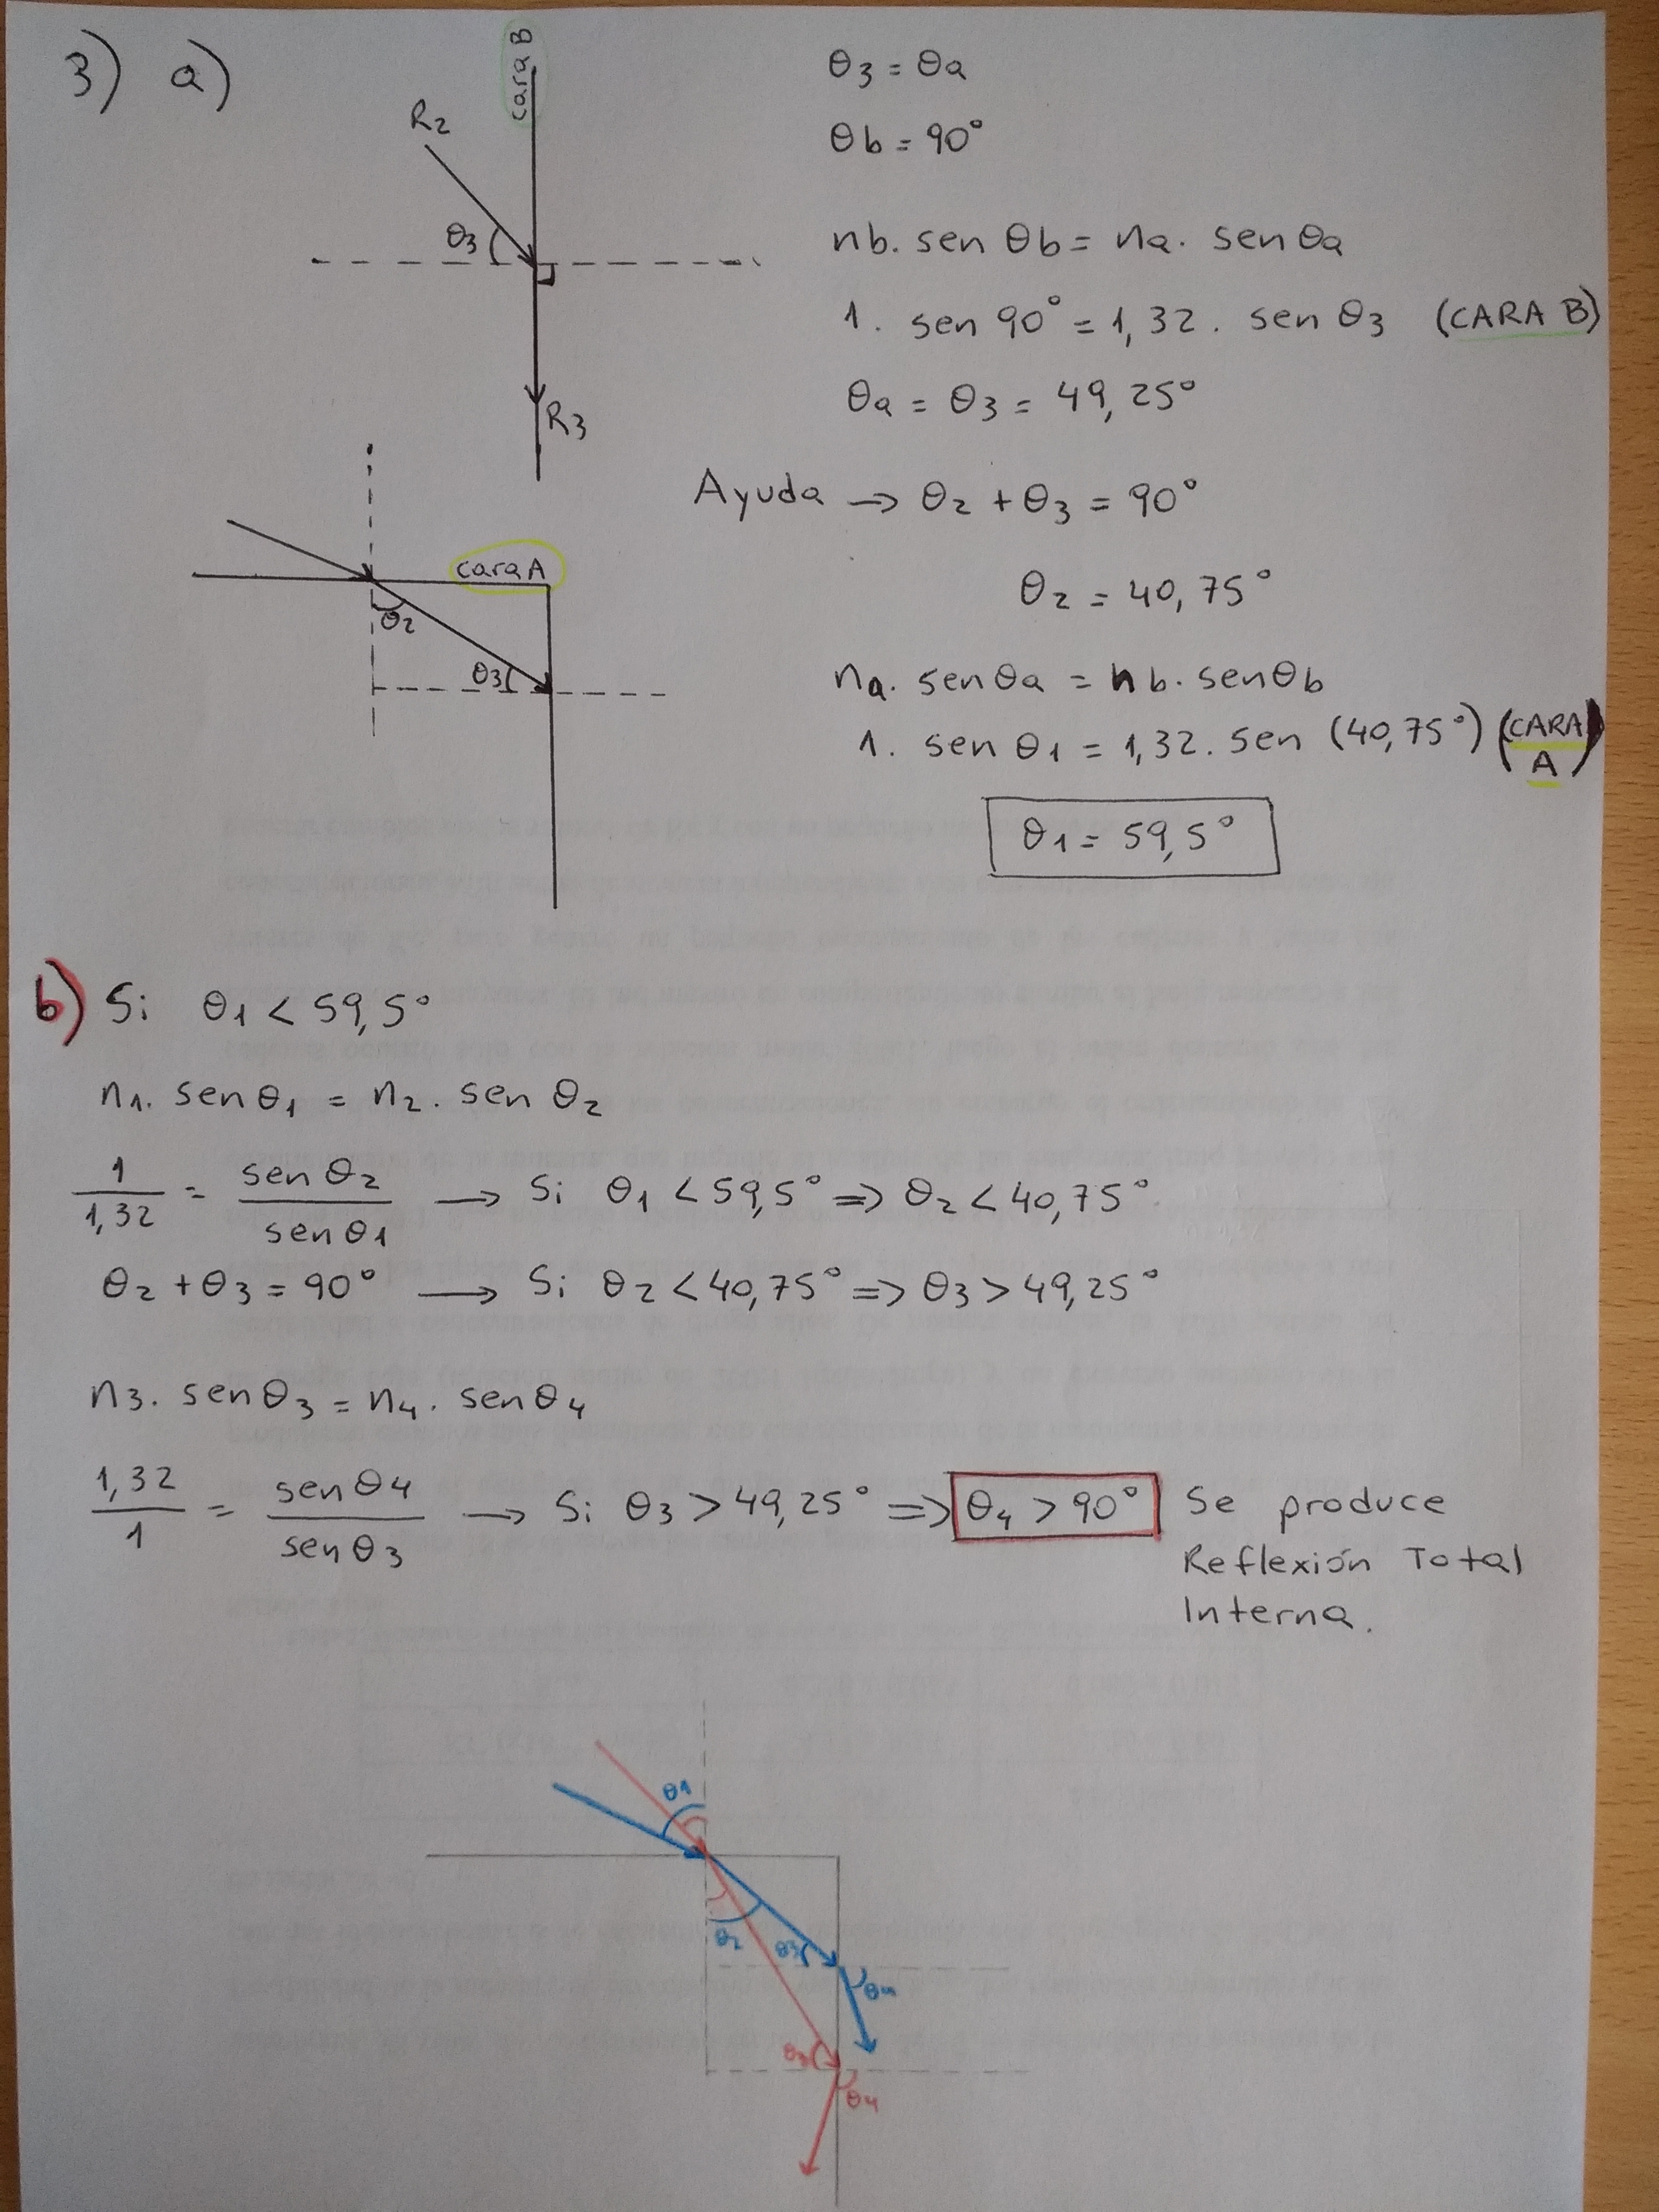 3) a)
cara B
R2
θ3
R3
θ3 = θa
θb = 90°
nb. sen θb = na. sen θa
1. sen 90° = 1,32. sen θ3 (CARA B)
θa = θ3 = 49,25°
Ayuda → θ2 + θ3 = 90°
θ2 = 40,75°
cara A
θ2
θ3
na. sen θa = nb. sen θb
1. sen θ1 = 1,32. sen (40,75°) (CARA A)
θ1 = 59,5°
b) Si θ1 < 59,5°
n1. sen θ1 = n2. sen θ2
1/1,32 = sen θ2/sen θ1 → Si θ1 < 59,5° => θ2 < 40,75°
θ2 + θ3 = 90° → Si θ2 < 40,75° => θ3 > 49,25°
n3. sen θ3 = n4. sen θ4
1,32/1 = sen θ4/sen θ3 → Si θ3 > 49,25° => θ4 > 90° Se produce
Reflexión Total
Interna.
θ1
θ2
θ3
θ4
θ3
θ4